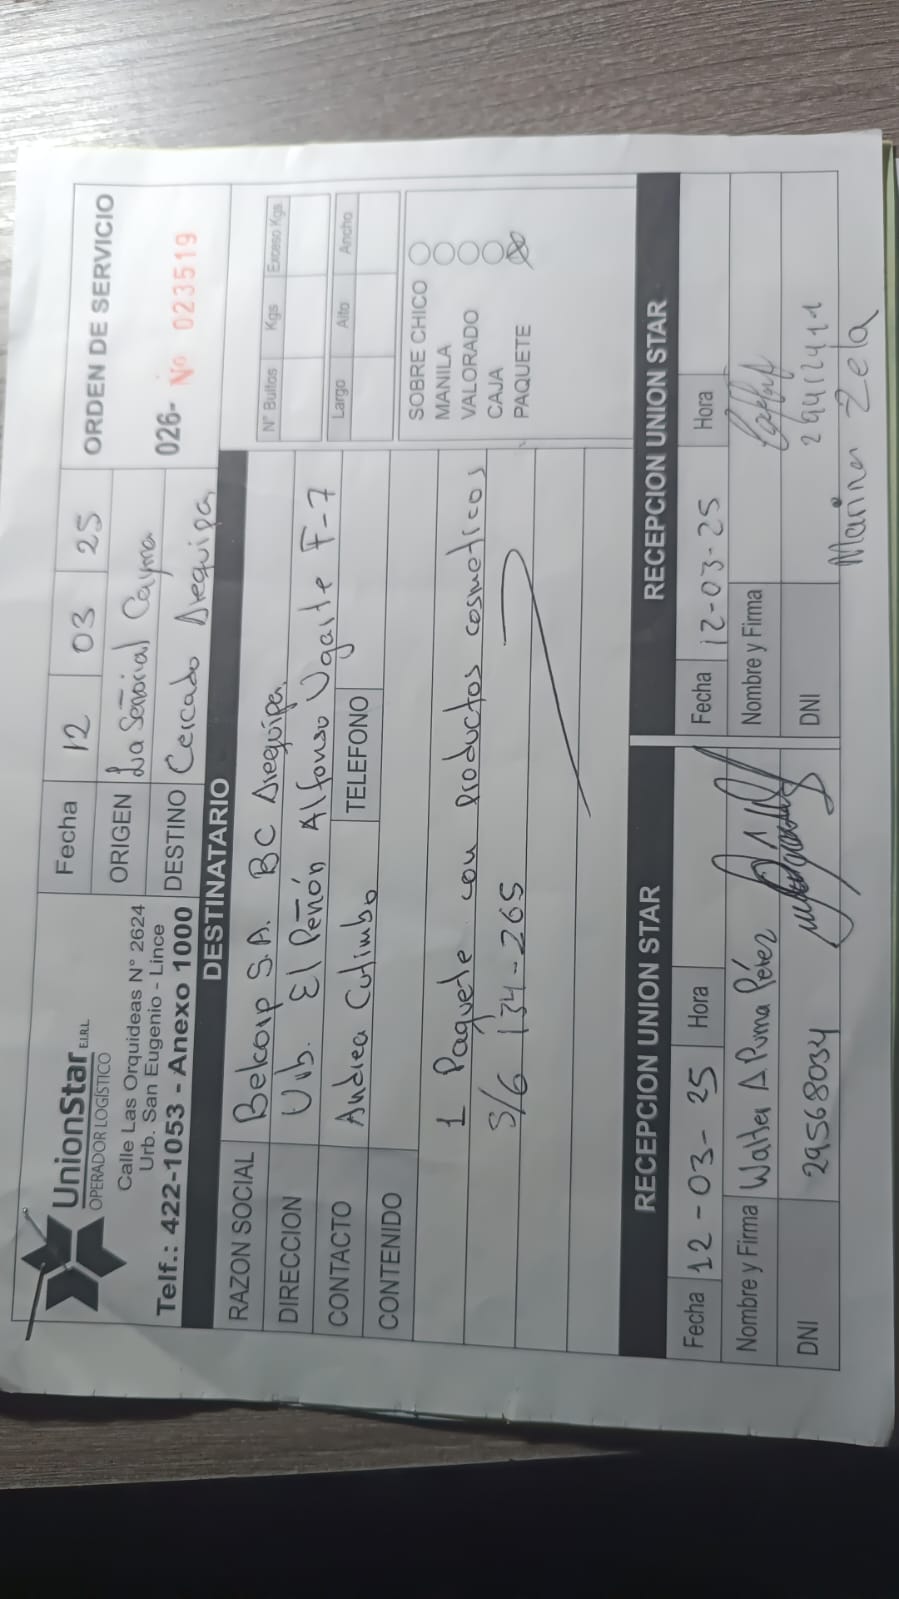 UnionStar E.I.R.L.
OPERADOR LOGÍSTICO
Calle Las Orquideas N° 2624
Urb. San Eugenio - Lince
Telf.: 422-1053 - Anexo 1000
Fecha 12 03 25
ORIGEN La Señorial Cayma
DESTINO Cercado Arequipa
ORDEN DE SERVICIO
026- Nº 023519
DESTINATARIO
RAZON SOCIAL Belcorp S.A. BC Arequipa
DIRECCION Urb. El Peñón Alfonso Ugarte F-7
CONTACTO Andrea Cutimbo TELEFONO
CONTENIDO
1 Paquete con productos cosmeticos
S/6 134-265
N° Bultos Kgs Exceso Kgs
Largo Alto Ancho
SOBRE CHICO
MANILA
VALORADO
CAJA
PAQUETE
RECEPCION UNION STAR
Fecha 12-03-25 Hora
Nombre y Firma Walter A Puma Pérez
DNI 29568034
RECEPCION UNION STAR
Fecha 12-03-25 Hora
Nombre y Firma
DNI 29412411
Marina Zela